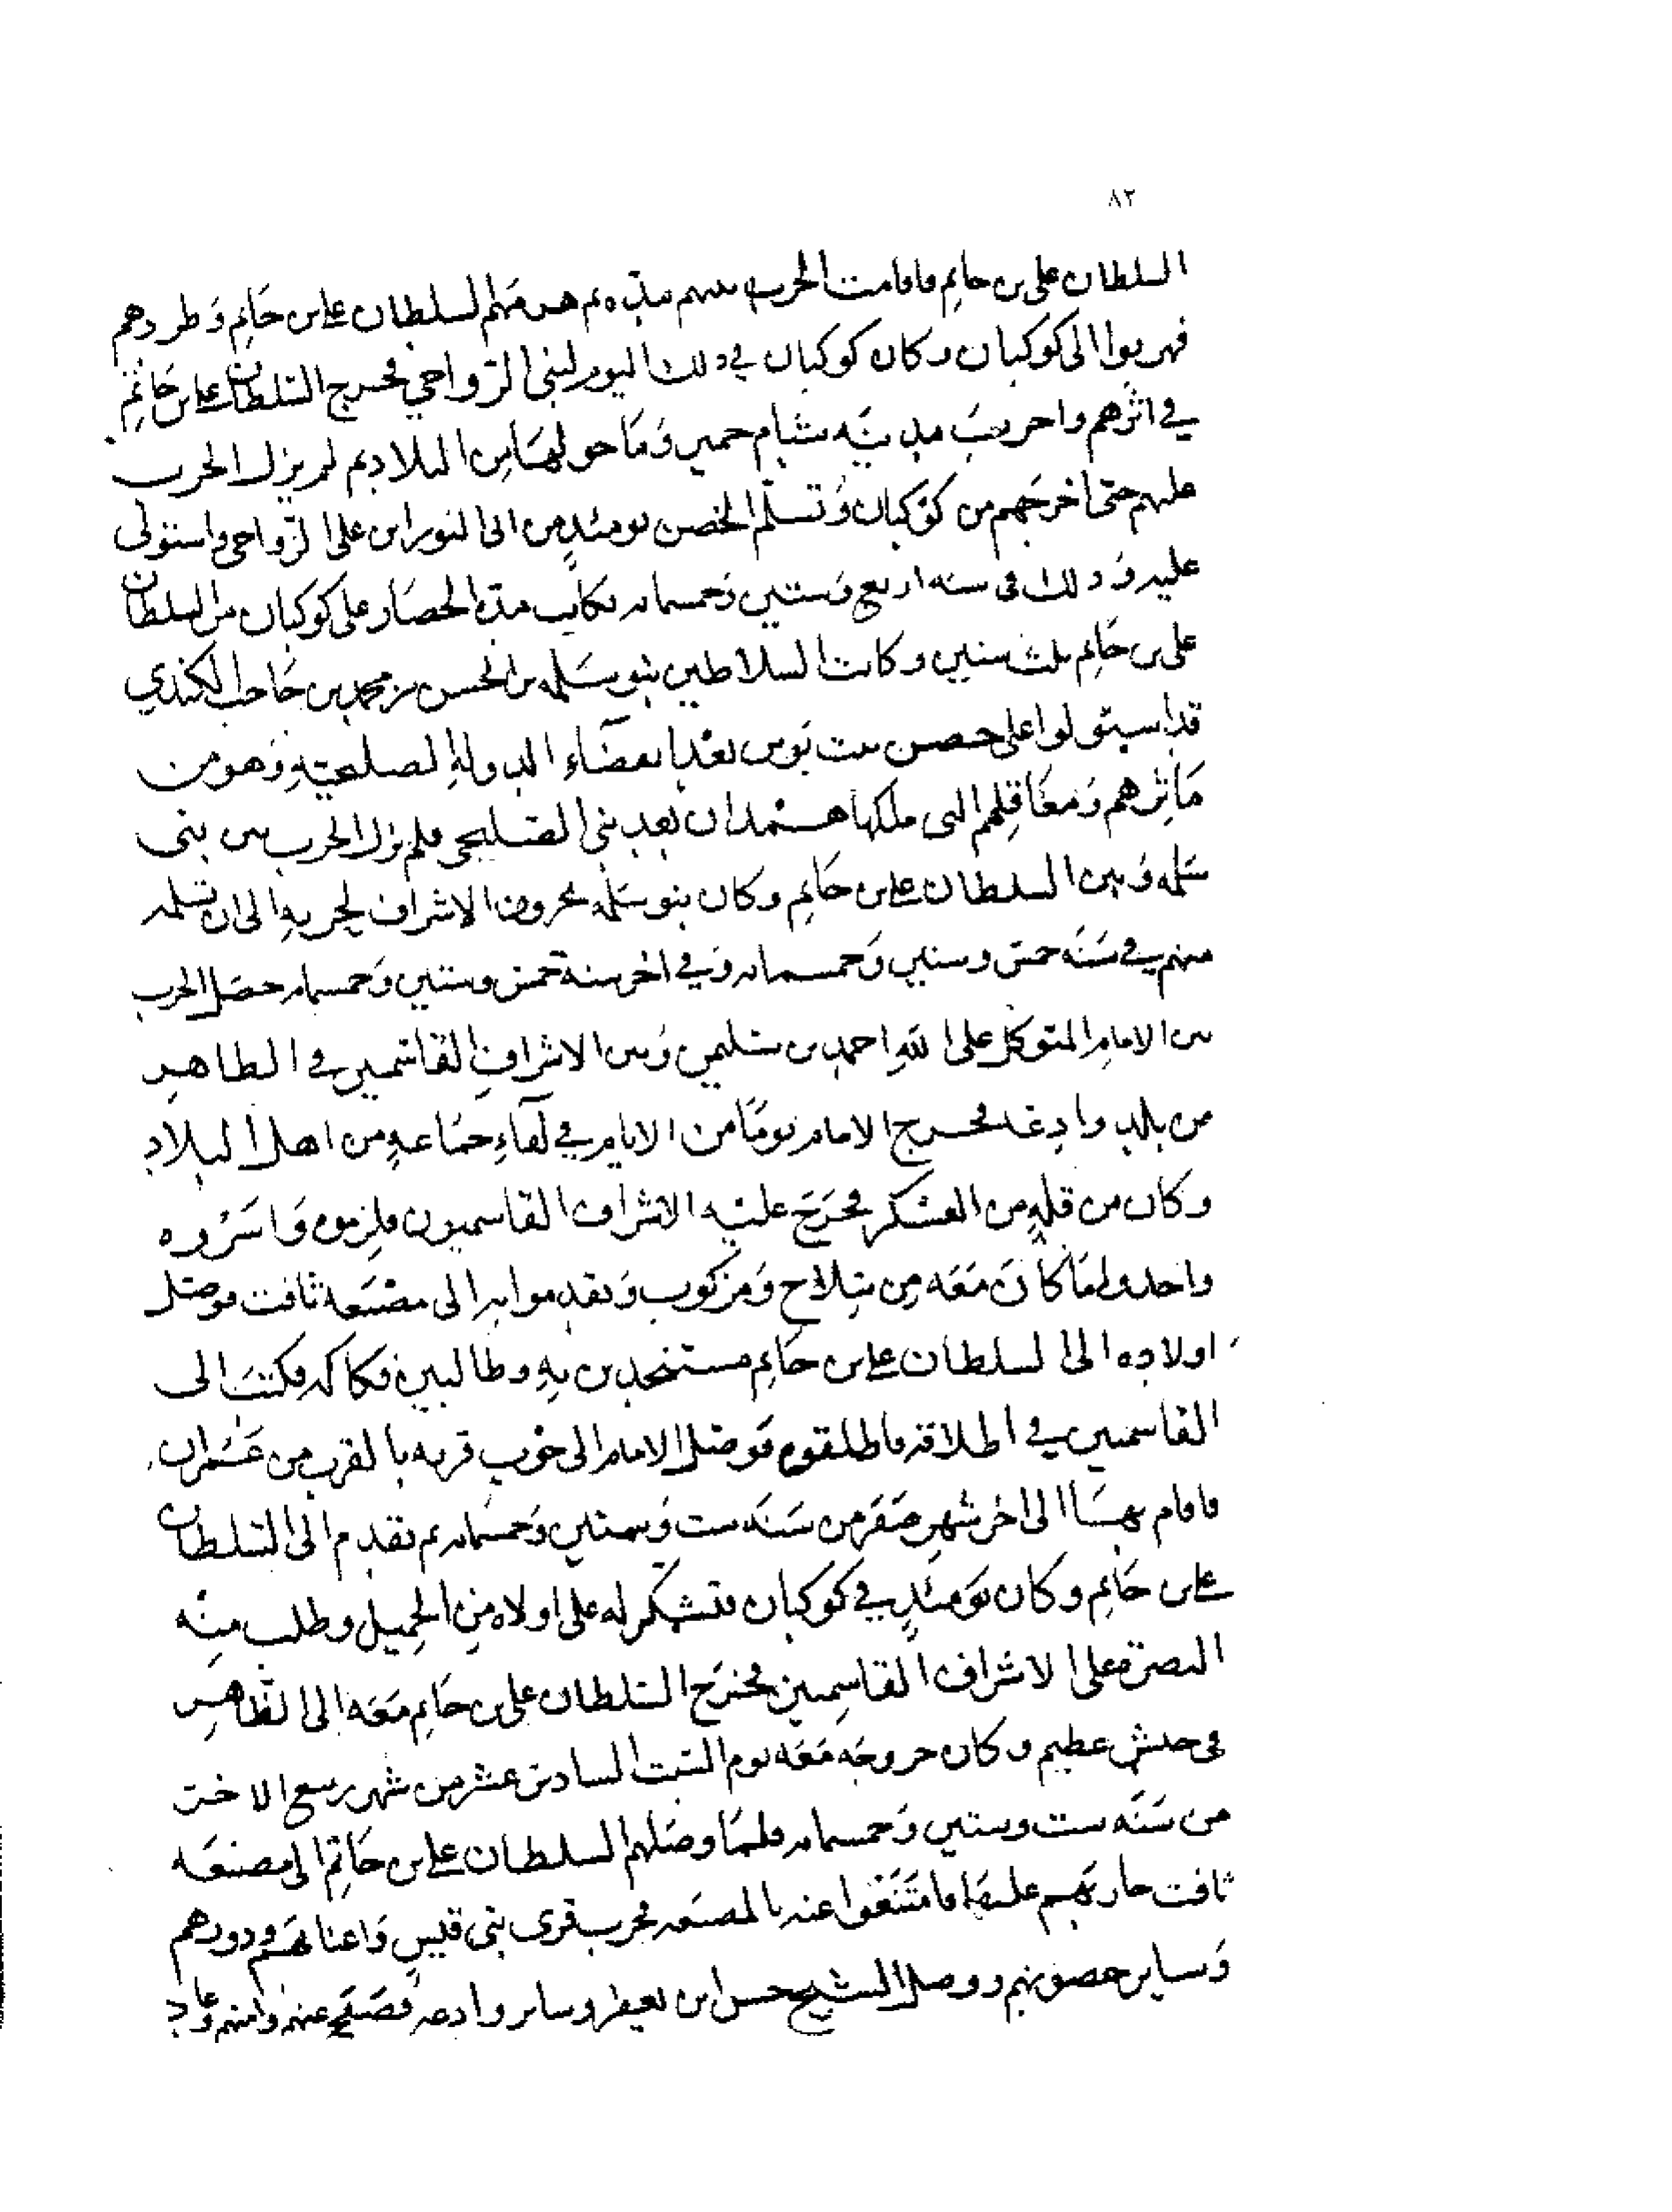 ٨٢
السلطان على بن حاتم فاقامت الحرب بينهم مدة ثم هزمهم السلطان على بن حَاتِم وَطردهم
فهربوا الى كوكبان وكان كوكبان في ذلك اليوم لبنى الزواحي فخرج السلطان على بن حَاتِم
في اثرهم واخربَ مدينَة شبام حمير وَمَا حولهَا من البلاد ثم لم يزل الحرب
عليهم حتى اخرجَهم من كوكبان وَتسلّم الحصن يومئذٍ من ابى النور ابن على الزواحى واستولى
عليه وَذلك فى سنه اربع وَستين وَخمسمايه فكانت مدة الحصَار على كوكبان من السلطان
على بن حَاتِم ثلث سنين وكانت السلاطين بنو سَلمه بن الحسن بن محمد بن حَاجب الكندي
قد استولوا على حصن بيت بَوس بعْد انقضَاء الدولةِ الصليحيّةِ وَهو من
مَاثِرهم وَمعَاقلِهم التى ملكها همْدان بعد بنى الصّليحي فلم يزل الحرب بين بنى
سَلمه وَبين السلطان على بن حَاتِم وكان بنو سَلمه يجرون الاشراف لحربهِ الى ان تسلمه
منهم في سَنَه خمسٍ وستين وَخمسمايه وَفي اخر سنة خمس وستين وَخمسمايه حصَل الحرب
بين الامام المتوكل على اللهِ احمد بن سليمن وَبين الاشرافِ القاسميين في الظاهر
من بلد وادِعَه فخرج الامام يومًا من الايام في لقاءِ جمَاعهٍ من اهل البلاد
وكان من قلهٍ من العسْكر فخرَجَ عليْه الاشراف القاسميون فلزموه وَاسَرُوه
واخذوا مَا كانَ مَعَه مِن سِلاحٍ وَمَركوب وَتقدموا به الى مصْنَعه ثافت فوصَل
اولاده الى السلطان على بن حَاتِم مستنجدين بهِ وطالبين فكاكه فكتبَ الى
القاسميين في اطلاقه فاطلقوه فَوصَل الامام الى حُوب قريه بالقرب من عَمْران
فاقام بهَا الى اخر شهرِ صَفَر من سَنَه ست وَستين وَخمسمايه ثم تقدم الى السلطان
على بن حَاتِم وكان يَومئذٍ في كوكبان فتشكر له على اولاه مِن الجميل وطلب منْه
النصرة على الاشراف القاسِميين فخرَج السلطان على بن حَاتِم مَعَه الى الظاهِر
فى جيش عظيم وكان خروجَه مَعَه يوم السَبت السادس عشر من شهر ربيع الاخر
من سَنَه ست وستين وَخمسمايه فلمَا وصَلهم السلطان على بن حَاتِم الى مصنعَه
ثافت حاربَهم عليهَا فامتَنَعُوا عنه بالمصنَعه فخرب قرى بنى قيسٍ وَاعنابهَم ودورهم
وَساير حصونهم ووصل الشيخ حسن ابن يعفر وساير وادعه فصَفَح عنهم وامنهم وعاد